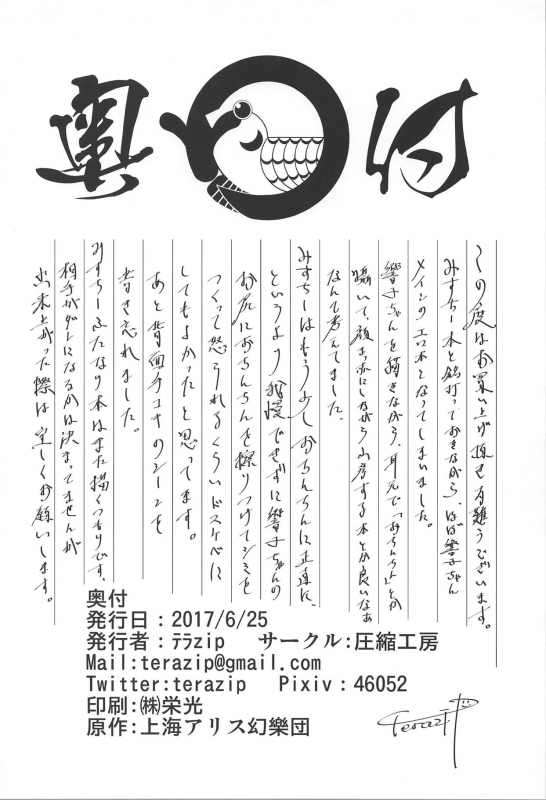 奥付
この度はお買い上げ頂き有難うございます。
みすちー本と銘打っておきながら、ほぼ響子ちゃん
メインのエロ本となってしまいました。
響子ちゃんを描きながら、耳元で「おちんちん」とか
囁いて、顔真っ赤にしながら山彦する本とか良いなぁ
なんて考えてました。
みすちーはもう少しおちんちんに正直に、
というより我慢できずに響子ちゃんの
お尻におちんちんを擦りつけてシミを
つくって怒られるくらいドスケベに
してもよかったと思ってます。
あと背面手コキのシーンを
書き忘れました。
みすちーふたなり本はまた描くつもりです、
相手がダレになるかは決まってませんが
出来上がった際は宜しくお願いします。
奥付
発行日：2017/6/25
発行者：ﾃﾗzip サークル:圧縮工房
Mail:terazip@gmail.com
Twitter:terazip Pixiv：46052
印刷:㈱栄光
原作:上海アリス幻樂団